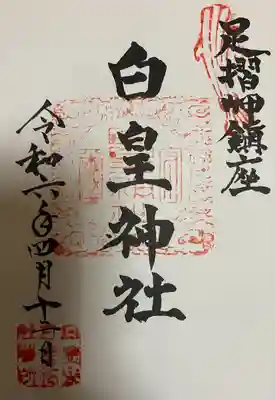 足摺岬鎮座
白皇神社
令和六年四月十六日